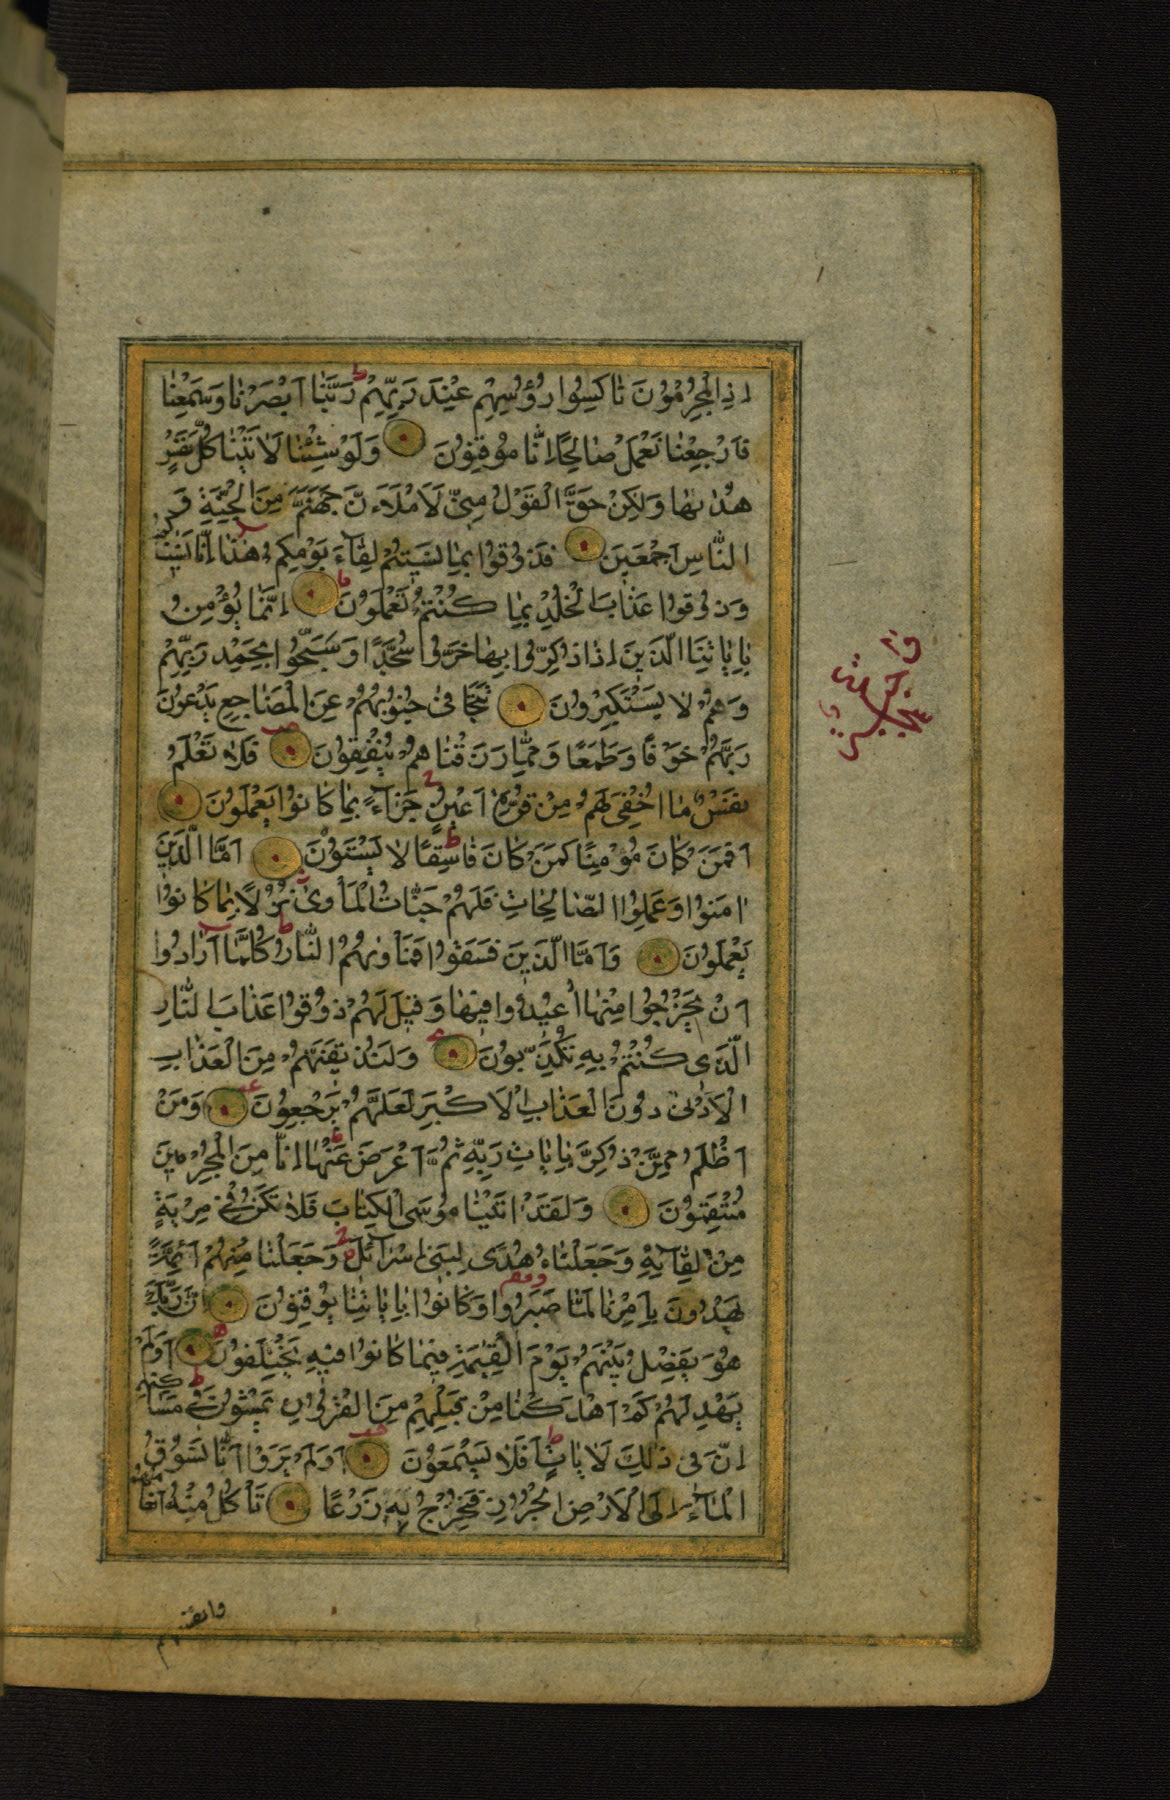 اِذِ الْمُجْرِمُونَ نَاكِسُوا رُؤُسِهِمْ عِنْدَ رَبِّهِمْ رَبَّنَا اَبْصَرْنَا وَسَمِعْنَا
فَارْجِعْنَا نَعْمَلْ صَالِحًا اِنَّا مُوقِنُونَ وَلَوْ شِئْنَا لَاٰتَيْنَا كُلَّ نَفْسٍ
هُدٰىهَا وَلٰكِنْ حَقَّ الْقَوْلُ مِنِّي لَاَمْلَاَنَّ جَهَنَّمَ مِنَ الْجِنَّةِ وَ
النَّاسِ اَجْمَعِينَ فَذُوقُوا بِمَا نَسِيتُمْ لِقَاءَ يَوْمِكُمْ هٰذَا اِنَّا نَسِينَاكُمْ
وَذُوقُوا عَذَابَ الْخُلْدِ بِمَا كُنْتُمْ تَعْمَلُونَ اِنَّمَا يُؤْمِنُ
بِاٰيَاتِنَا الَّذِينَ اِذَا ذُكِّرُوا بِهَا خَرُّوا سُجَّدًا وَسَبَّحُوا بِحَمْدِ رَبِّهِمْ
وَهُمْ لَا يَسْتَكْبِرُونَ تَتَجَافٰى جُنُوبُهُمْ عَنِ الْمَضَاجِعِ يَدْعُونَ
رَبَّهُمْ خَوْفًا وَطَمَعًا وَمِمَّا رَزَقْنَاهُمْ يُنْفِقُونَ فَلَا تَعْلَمُ
نَفْسٌ مَا اُخْفِيَ لَهُمْ مِنْ قُرَّةِ اَعْيُنٍ جَزَاءً بِمَا كَانُوا يَعْمَلُونَ
اَفَمَنْ كَانَ مُؤْمِنًا كَمَنْ كَانَ فَاسِقًا لَا يَسْتَوُونَ اَمَّا الَّذِينَ
اٰمَنُوا وَعَمِلُوا الصَّالِحَاتِ فَلَهُمْ جَنَّاتُ الْمَأْوٰى نُزُلًا بِمَا كَانُوا
يَعْمَلُونَ وَاَمَّا الَّذِينَ فَسَقُوا فَمَأْوٰيهُمُ النَّارُ كُلَّمَا اَرَادُوا
اَنْ يَخْرُجُوا مِنْهَا اُعِيدُوا فِيهَا وَقِيلَ لَهُمْ ذُوقُوا عَذَابَ النَّارِ
الَّذِي كُنْتُمْ بِهِ تُكَذِّبُونَ وَلَنُذِيقَنَّهُمْ مِنَ الْعَذَابِ
الْاَدْنٰى دُونَ الْعَذَابِ الْاَكْبَرِ لَعَلَّهُمْ يَرْجِعُونَ وَمَنْ
اَظْلَمُ مِمَّنْ ذُكِّرَ بِاٰيَاتِ رَبِّهِ ثُمَّ اَعْرَضَ عَنْهَا اِنَّا مِنَ الْمُجْرِمِينَ
مُنْتَقِمُونَ وَلَقَدْ اٰتَيْنَا مُوسَى الْكِتَابَ فَلَا تَكُنْ فِي مِرْيَةٍ
مِنْ لِقَائِهِ وَجَعَلْنَاهُ هُدًى لِبَنِي اِسْرَائِلَ وَجَعَلْنَا مِنْهُمْ اَئِمَّةً
يَهْدُونَ بِاَمْرِنَا لَمَّا صَبَرُوا وَكَانُوا بِاٰيَاتِنَا يُوقِنُونَ اِنَّ رَبَّكَ
هُوَ يَفْصِلُ بَيْنَهُمْ يَوْمَ الْقِيٰمَةِ فِيمَا كَانُوا فِيهِ يَخْتَلِفُونَ اَوَلَمْ
يَهْدِ لَهُمْ كَمْ اَهْلَكْنَا مِنْ قَبْلِهِمْ مِنَ الْقُرُونِ يَمْشُونَ فِي مَسَاكِنِهِمْ
اِنَّ فِي ذٰلِكَ لَاٰيَاتٍ اَفَلَا يَسْمَعُونَ اَوَلَمْ يَرَوْا اَنَّا نَسُوقُ
الْمَاءَ اِلَى الْاَرْضِ الْجُرُزِ فَنُخْرِجُ بِهِ زَرْعًا تَأْكُلُ مِنْهُ اَنْعَامُهُمْ
وانفسهم